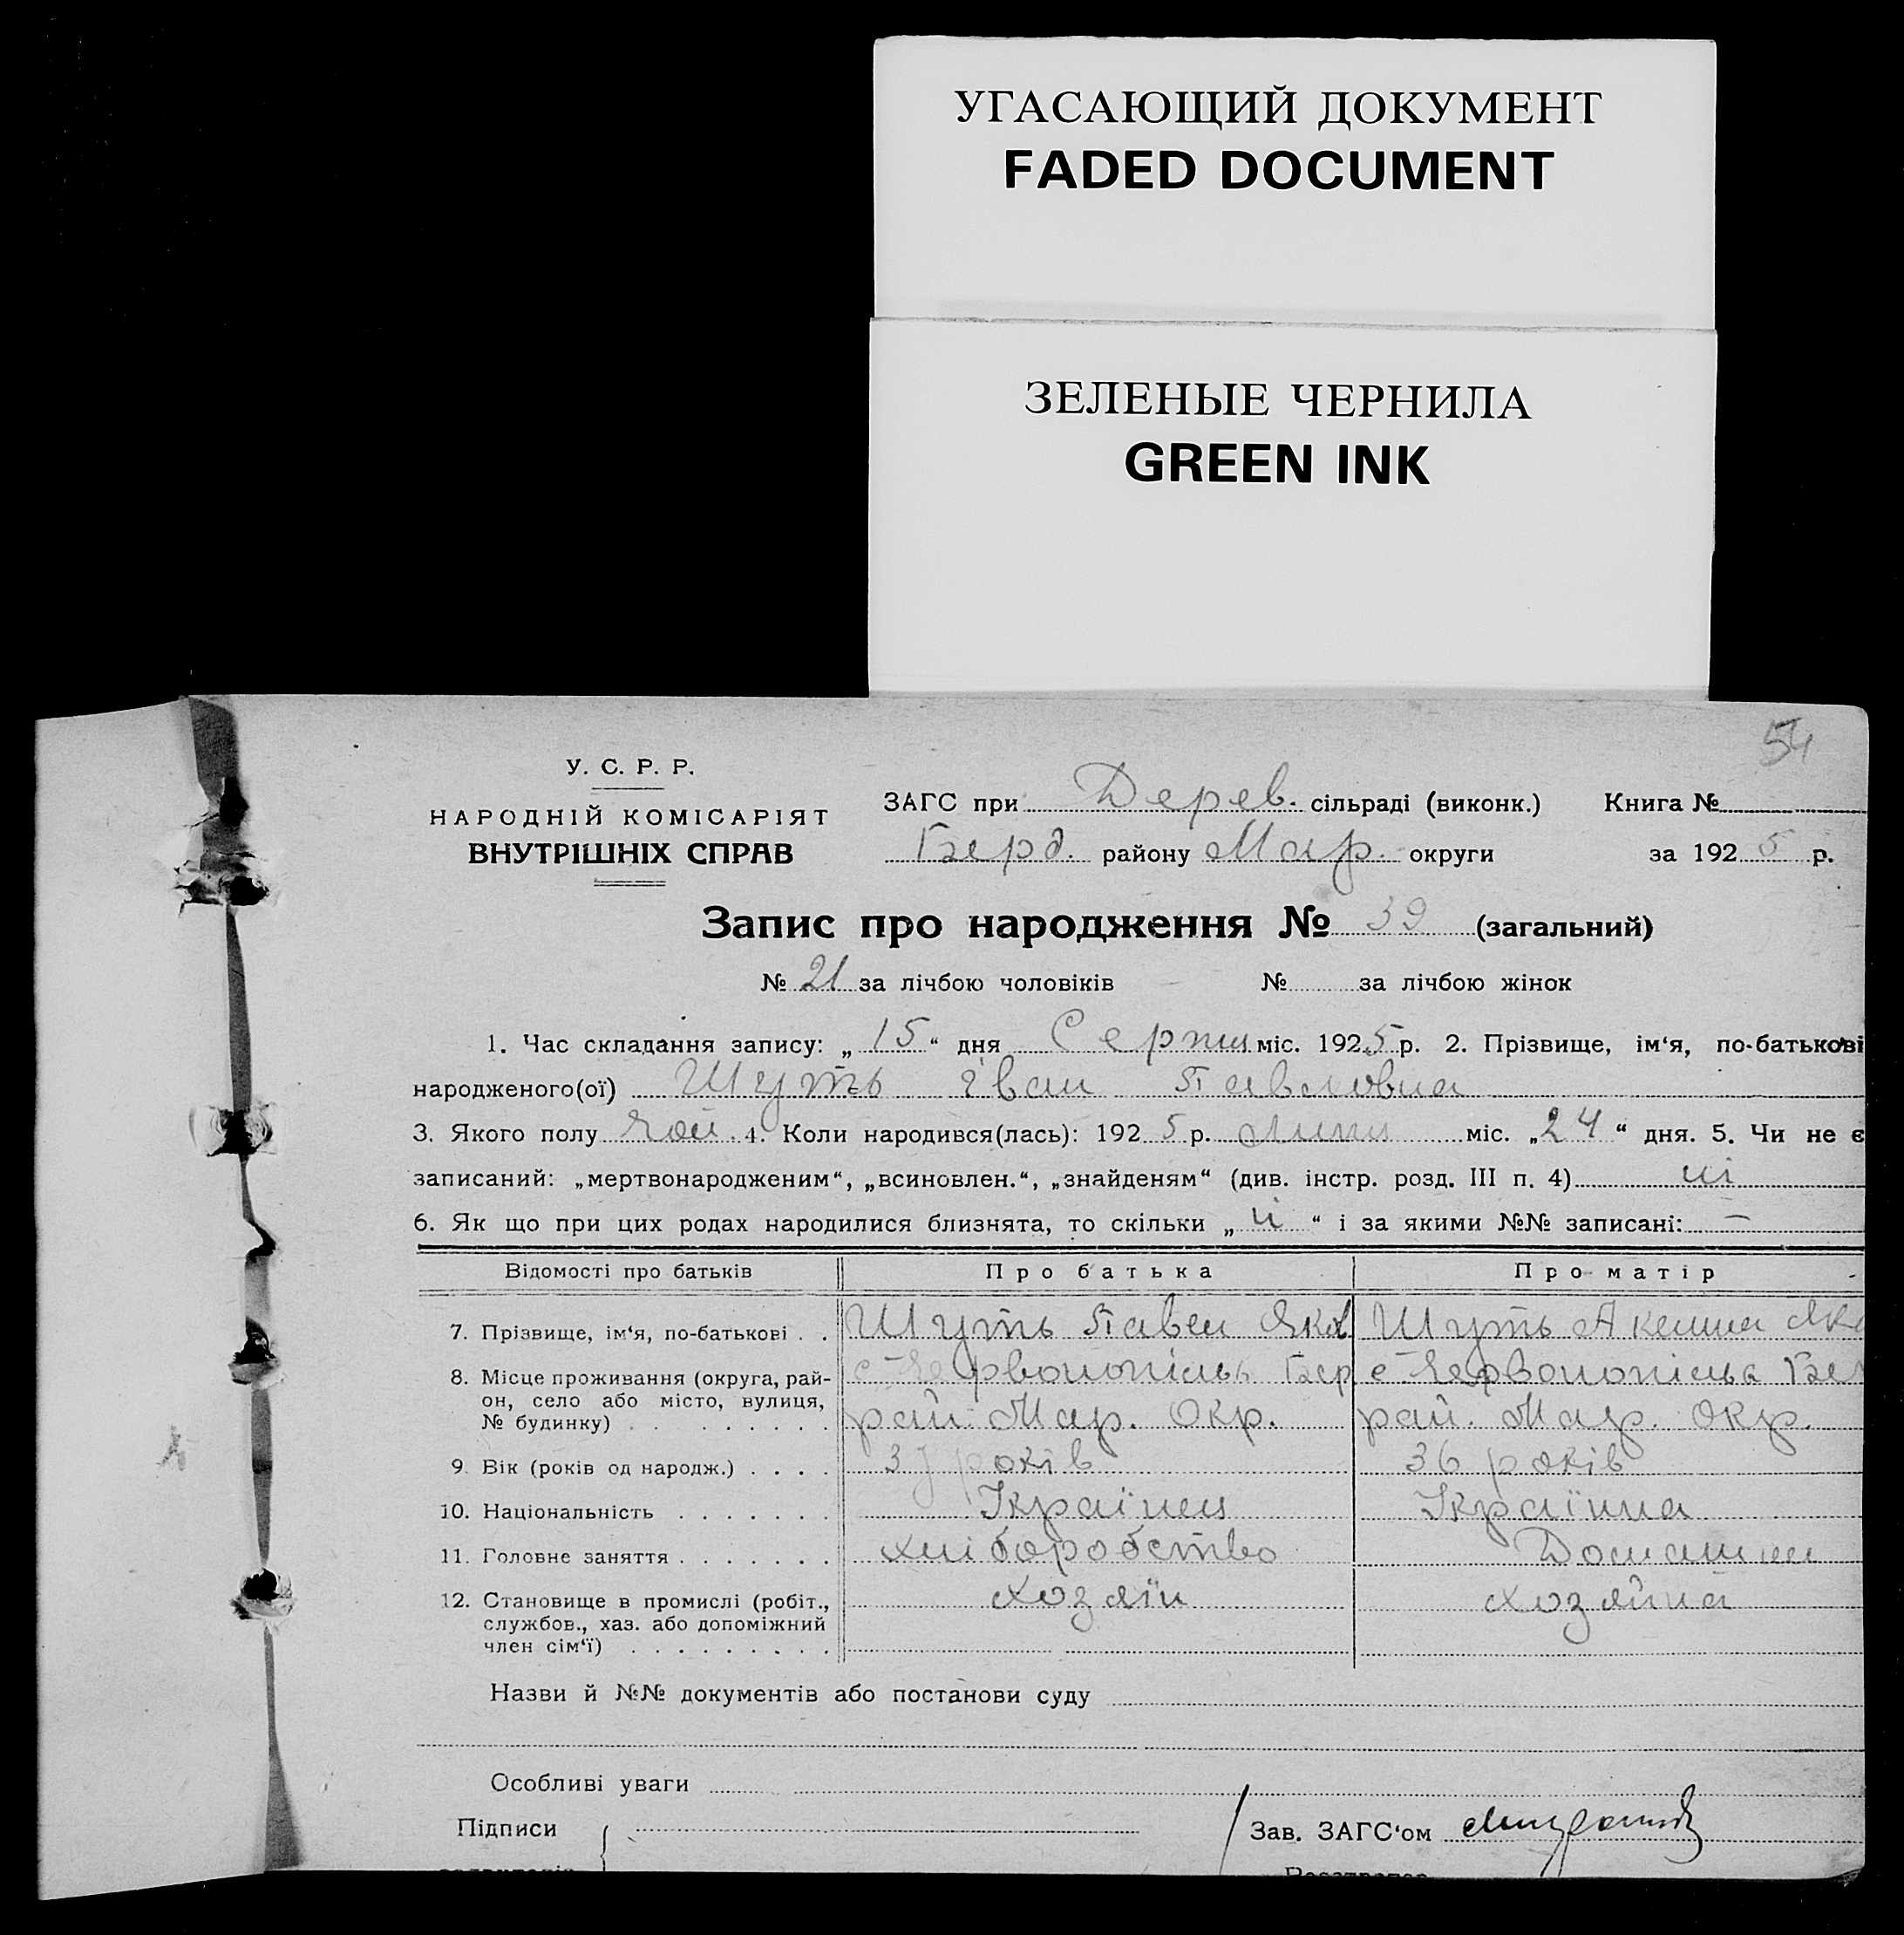 УГАСАЮЩИЙ ДОКУМЕНТ
FADED DOCUMENT
ЗЕЛЕНЫЕ ЧЕРНИЛА
GREEN INK
54
У. С. Р. Р.
НАРОДНІЙ КОМІСАРІЯТ
ВНУТРІШНІХ СПРАВ
ЗАГС при Дерев. сільраді (виконк.) Книга №
Берд. району Мар. округи за 1925 р.
Запис про народження № 39 (загальний)
№ 21 за лічбою чоловіків № за лічбою жінок
1. Час складання запису: „15“ дня Серпня міс. 1925 р. 2. Прізвище, ім‘я, по-батькові
народженого(ої) Шуть Іван Павловиа
3. Якого полу чол. 4. Коли народився(лась): 1925 р. Липня міс. „24“ дня. 5. Чи не є
записаний: „мертвонародженим“, „всиновлен.“, „знайденям“ (див. інстр. розд. III п. 4) ні
6. Як що при цих родах народилися близнята, то скільки „ “ і за якими №№ записані: —
Відомості про батьків Про батька Про матір
7. Прізвище, ім‘я, по-батькові . . Шуть Павел Яков Шуть Акелина Яко
8. Місце проживання (округа, рай- с Червонопілья Бер с Червонопілья Бер
он, село або місто, вулиця,
№ будинку) . . . . . . . . рай. Мар. Окр. рай. Мар. Окр.
9. Вік (років од народж.) . . . . 37 років 36 років
10. Національність . . . . . . . Українец Українка
11. Головне заняття . . . . . . . хліборобство Домашнє
12. Становище в промислі (робіт., хозяїн хозяйка
службов., хаз. або допоміжний
член сім‘ї) . . . . . . . . .
Назви й №№ документів або постанови суду
Особливі уваги
Підписи
Зав. ЗАГС‘ом